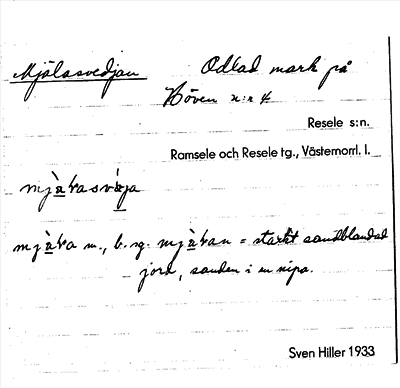 Mjälasvedjan
Odlad mark på
Höven n:r 4
Resele s:n.
Ramsele och Resele tg., Västernorrl. l.
m., b. sg. = starkt sandblandad
jord, sanden i en nipa.
Sven Hiller 1933